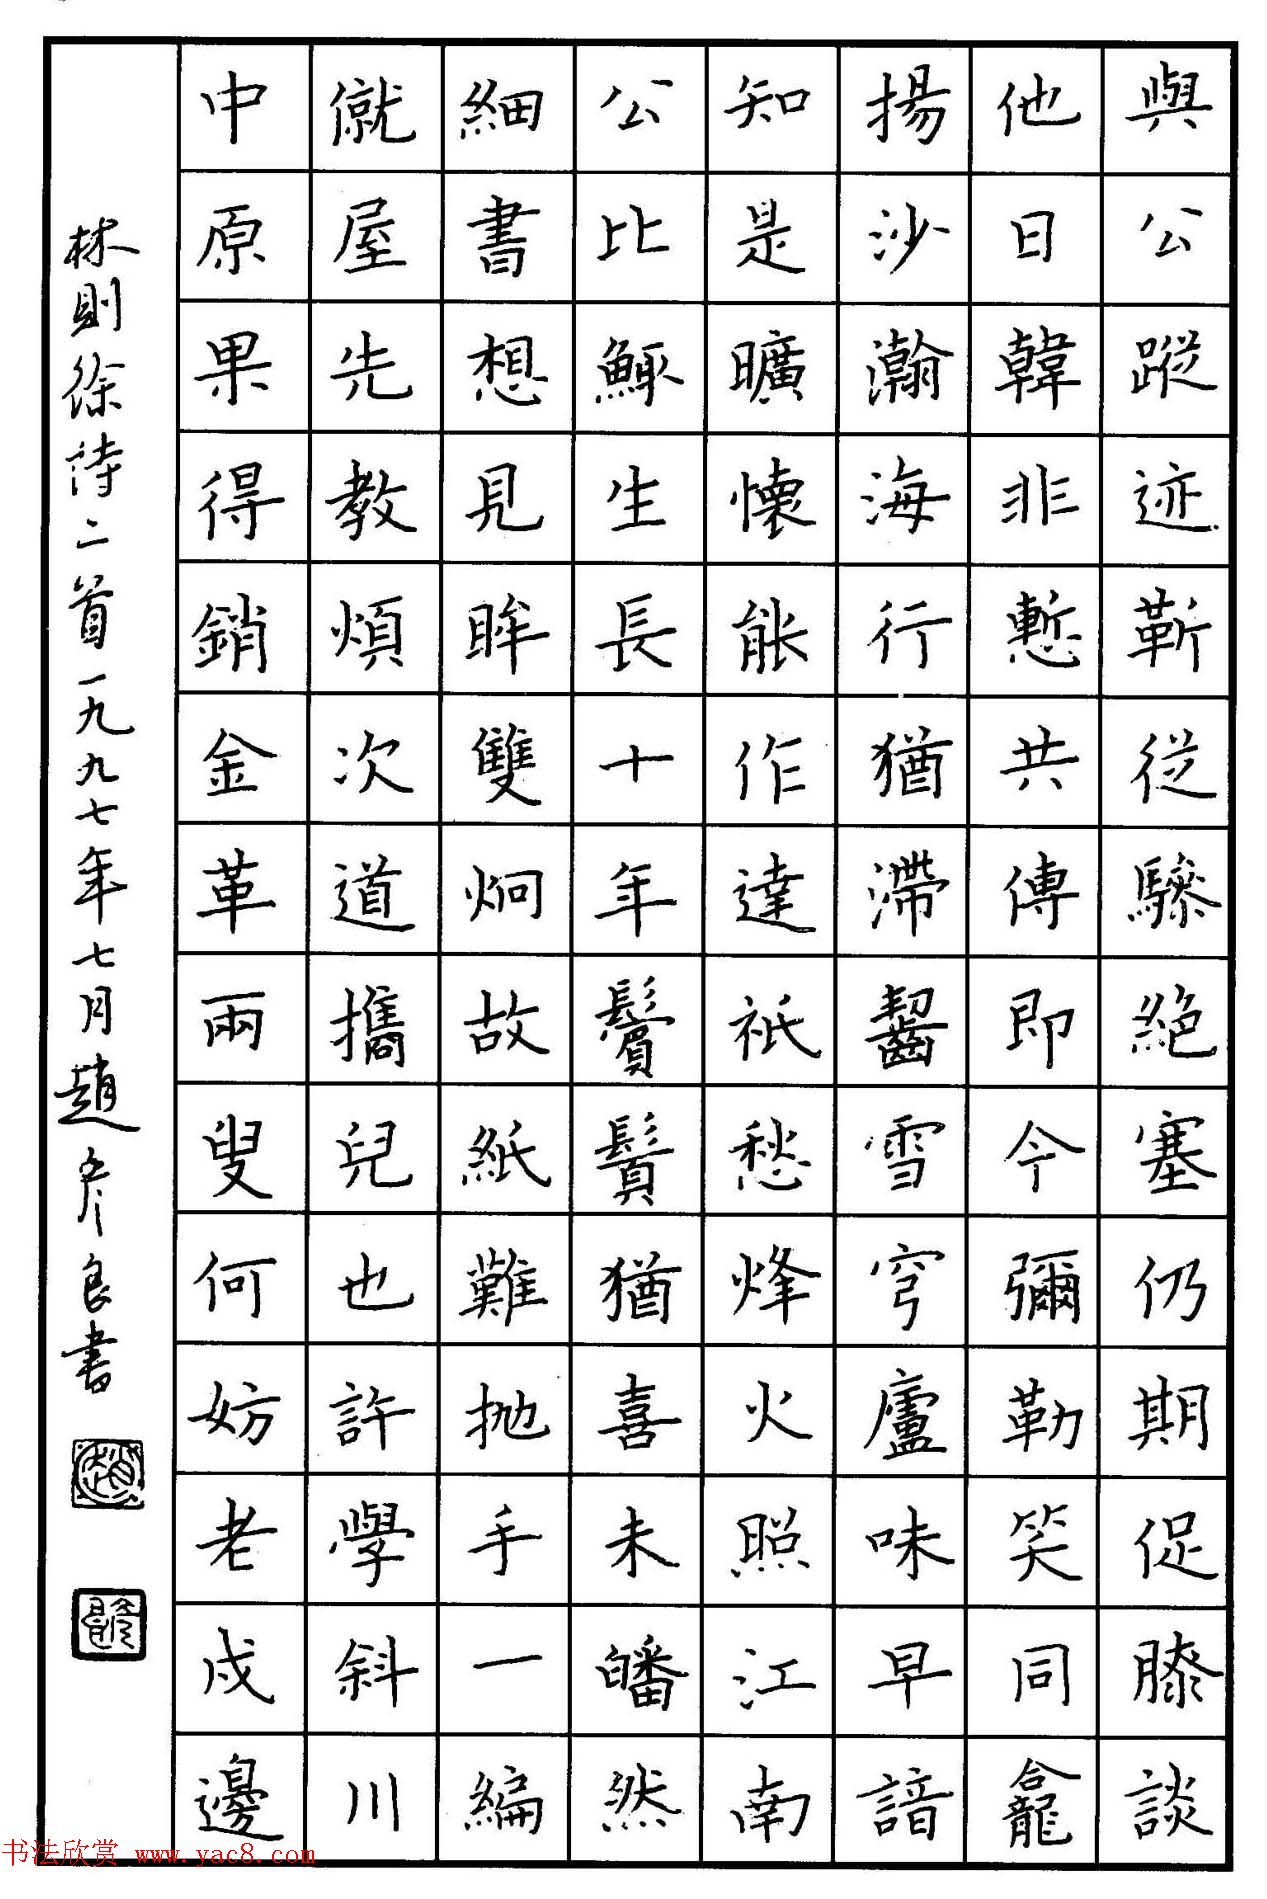 與公蹤迹靳從驂絕塞仍期促膝談
他日韓非慙共傳即今彌勒笑同龕
揚沙瀚海行猶滯齧雪穹廬味早諳
知是曠懷能作達祇愁烽火照江南
公比鯫生長十年鬢鬚猶喜未皤然
細書想見眸雙炯故紙難拋手一編
僦屋先教煩次道攜兒也許學斜川
中原果得銷金革兩叟何妨老戍邊
林則徐詩二首一九九七年七月趙彥良書
书法欣赏 www.yac8.com